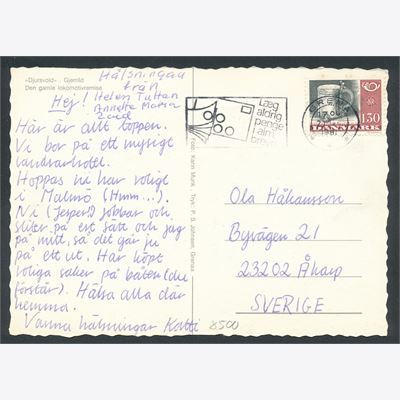 »Djursvold« . Gjerrild
Den gamle lokomotivremise
Hälsningar
från
Helen
Hej!
Här är allt toppen.
Vi bor på ett mysigt
landvarhotel.
Hoppas ni har roligt
i Malmö (Hmm...).
Ni (Jesper!) jobbar och
sliter på ert sätt och jag
på mitt, så det går ju
på ett ut. Har köpt
roliga saker på båten (du
förstår). Hälsa alla där
hemma.
Varma hälsningar Katti
8500
Foto: Karin Munk . Tryk: P. B. Johnsen, Grenaa
Læg
aldrig
penge
i alm.
breve
GRENÅ
130
DANMARK
Ola Håkansson
Byvägen 21
23202 Åkarp
SVERIGE